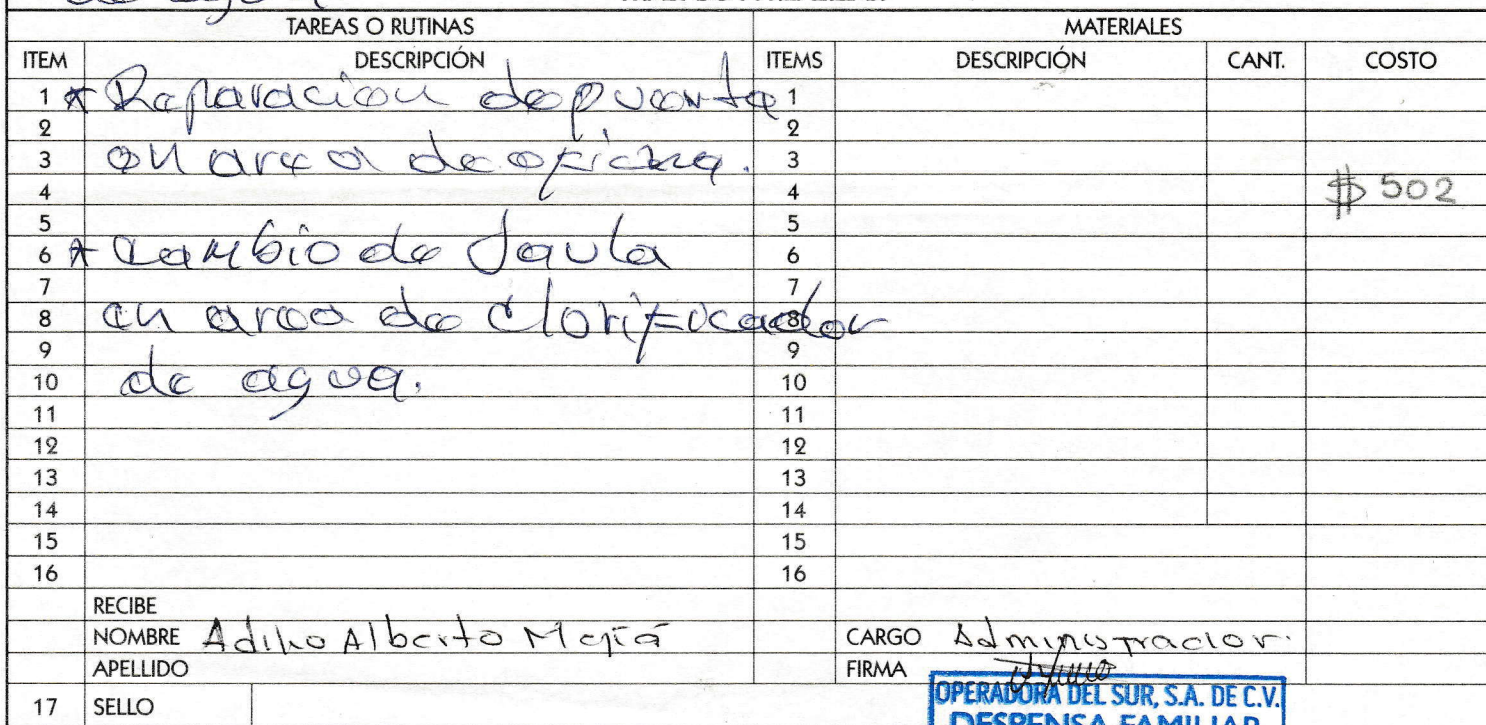 de agua
TAREAS O RUTINAS MATERIALES
ITEM DESCRIPCIÓN ITEMS DESCRIPCIÓN CANT. COSTO
1 * Reparacion de puerta 1
2 2
3 en area de oficina. 3
4 4 $ 502
5 5
6 * Cambio de Jaula 6
7 7
8 en area de Clorificador 8
9 9
10 de agua. 10
11 11
12 12
13 13
14 14
15 15
16 16
RECIBE
NOMBRE Alberto Mejía CARGO Administrador.
APELLIDO FIRMA
17 SELLO OPERADORA DEL SUR, S.A. DE C.V.
DESPENSA FAMILIAR